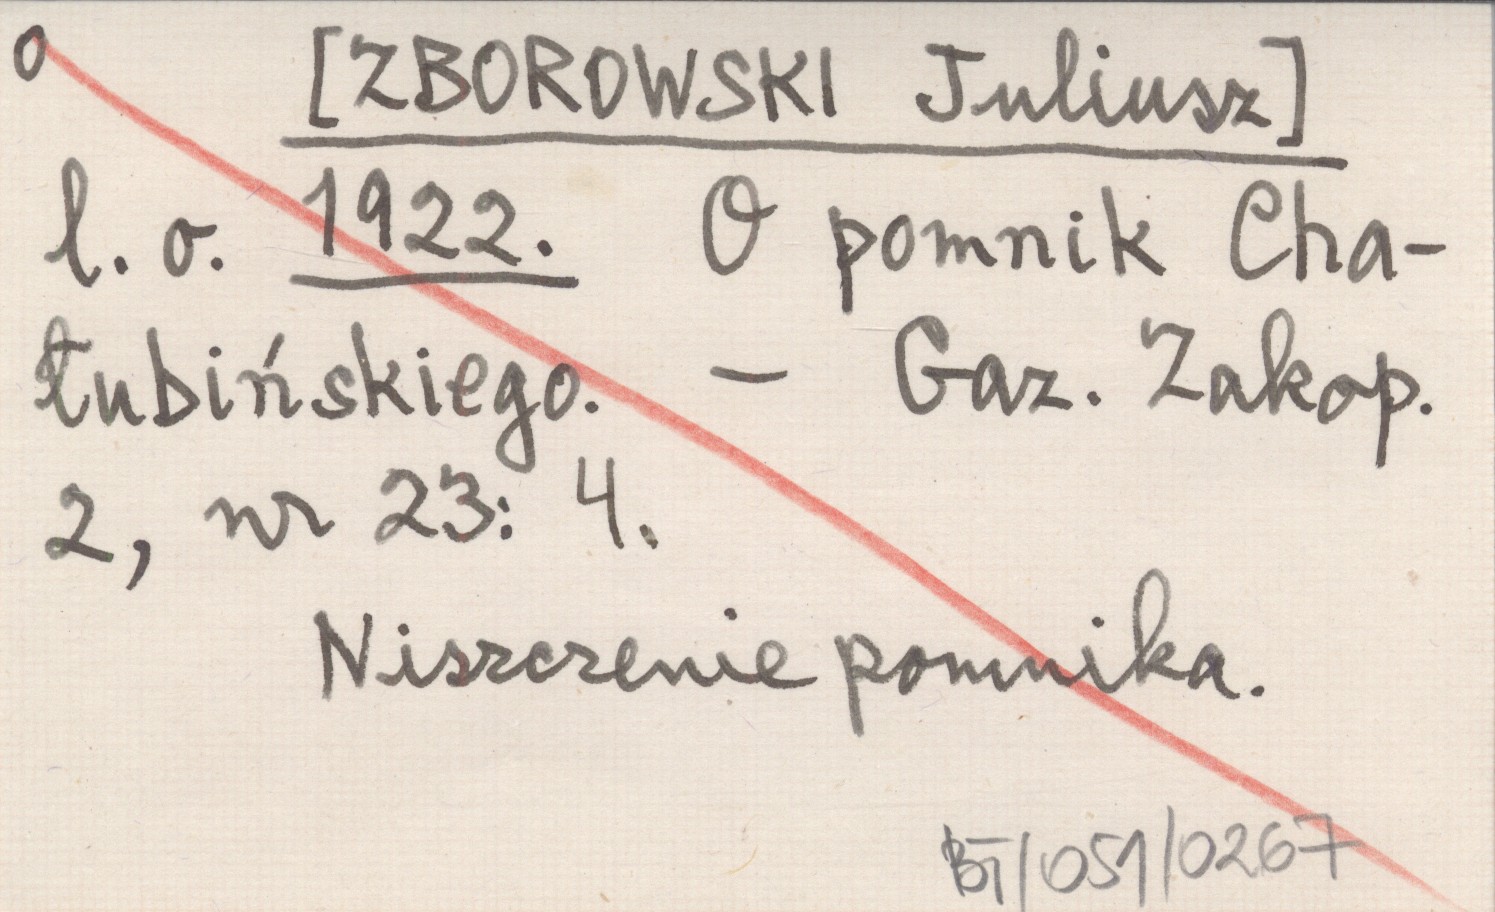 o [ZBOROWSKI Juliusz]
l. o. 1922. O pomnik Cha-
łubińskiego. – Gaz. Zakop.
2, nr 23: 4.
Niszczenie pomnika.
BT/051/0267